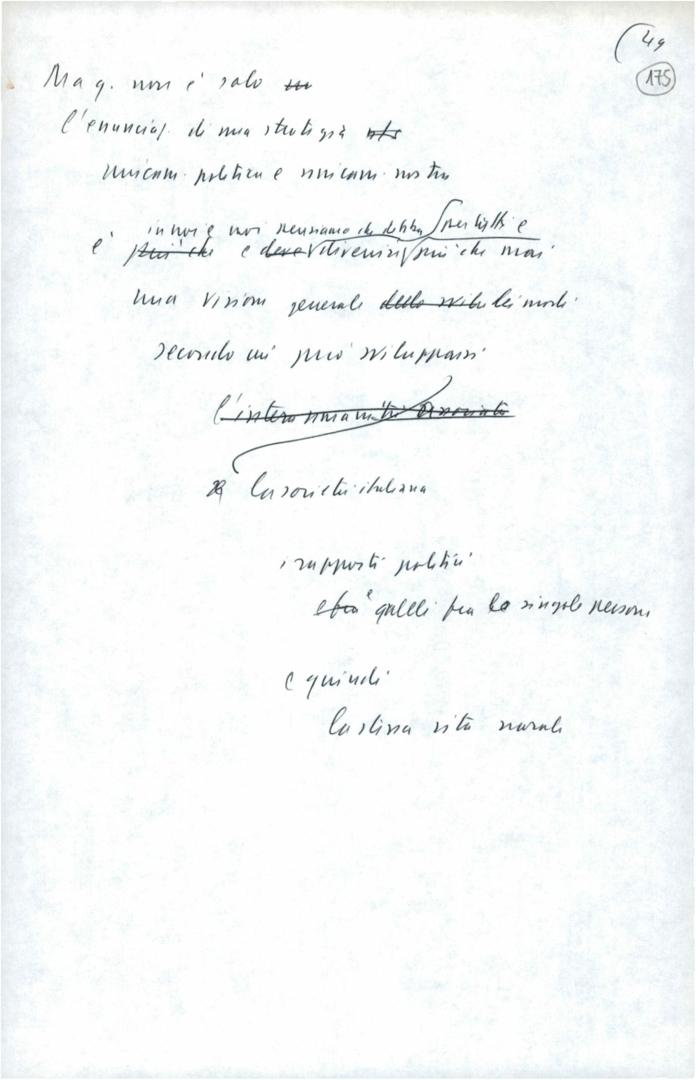 49
175
Ma q. non è solo
l'enunciaz. di una strategia
unicam. politica e unicam. nostra
in noi e noi pensiamo che debba per tutti e
è più che e deve divenire più che mai
una visione generale dei modi
secondo cui può svilupparsi
l'intera umanità associata
la società italiana
i rapporti politici
e fra quelli fra le singole persone
e quindi
la stessa vita morale